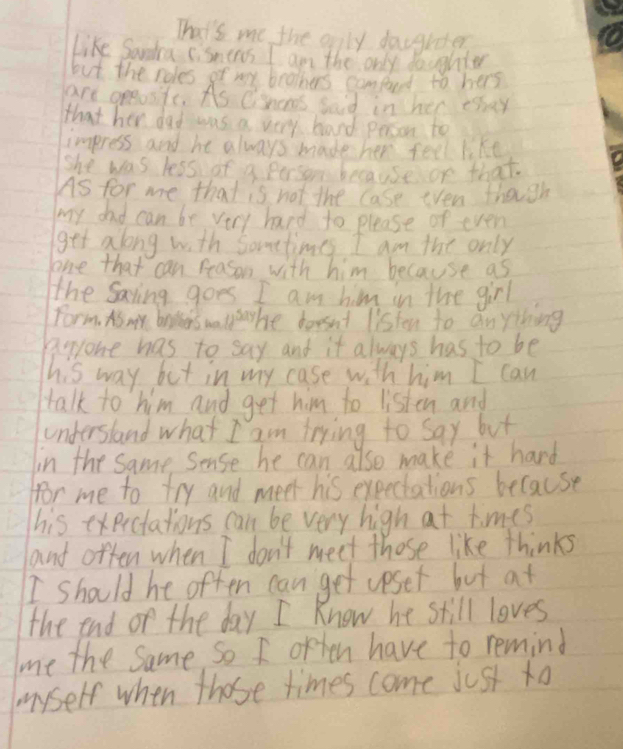 That's me the only daughter
Like Sandra Cisneros I am the only daughter
but the roles of my brothers compared to hers
are opposite. As Cisneros said in her essay
that her dad was a very hard person to
impress and he always made her feel like
she was less of a person because of that.
As for me that is not the case even though
my dad can be very hard to please of even
get along with sometimes I am the only
one that can reason with him because as
the saying goes I am him in the girl
form. As my brothers would say he doesn't listen to anything
anyone has to say and it always has to be
his way but in my case with him I can
talk to him and get him to listen and
understand what I am trying to say but
in the same sense he can also make it hard
for me to try and meet his expectations because
his expectations can be very high at times
and often when I don't meet those like thinks
I should he often can get upset but at
the end of the day I know he still loves
me the same so I often have to remind
myself when those times come just to